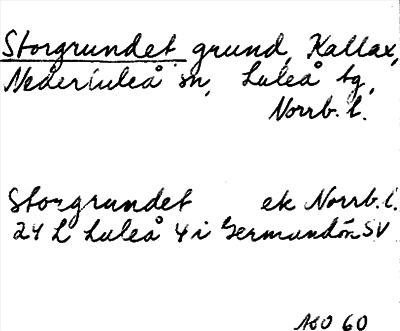 Storgrundet grund, Kallax,
Nederluleå sn, Luleå tg,
Norrb. l.
Storgrundet ek Norrb. l.
24 L Luleå 4 i Germundön SV
60